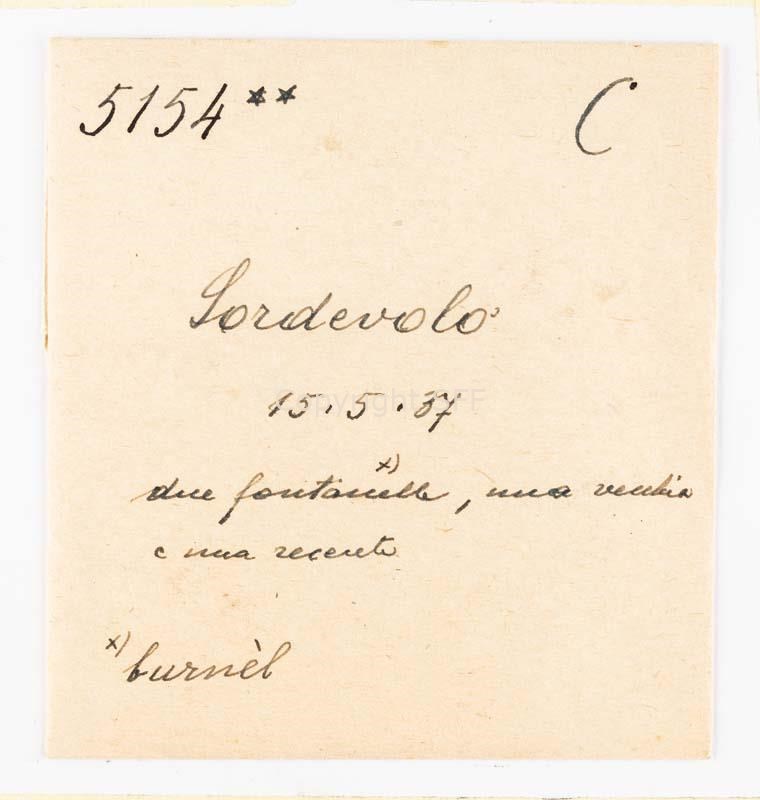 5154** C
Sordevolo
15.5.37
due fontanelle x), una vecchia
e una recente
x) burnèl